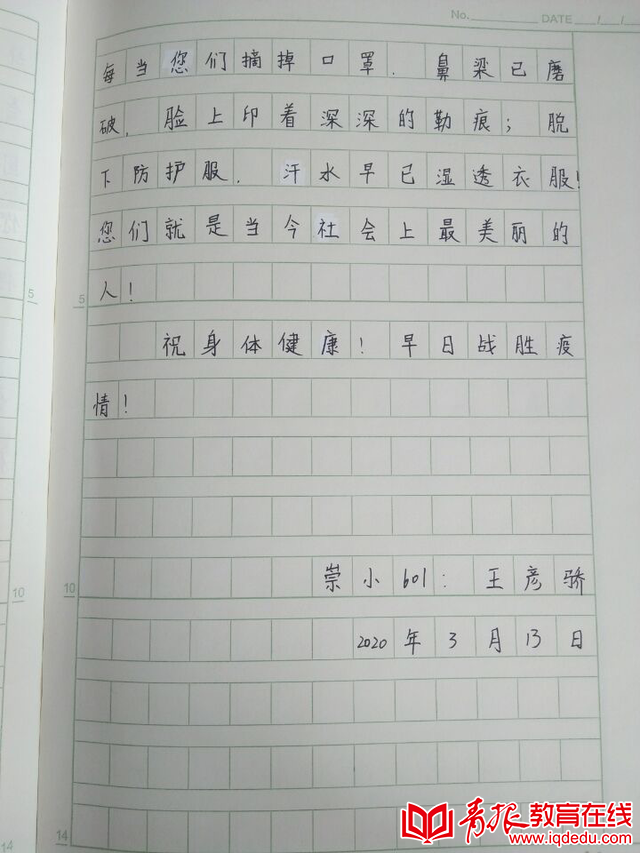 No. DATE / /
每当您们摘掉口罩.鼻梁已磨
破.脸上印着深深的勒痕;脱
下防护服.汗水早已湿透衣服!
您们就是当今社会上最美丽的
5
5
人!
祝身体健康!早日战胜疫
情!
10
10
崇小601:王彦骄
2020年3月13日
14
14
青报教育在线
www.iqdedu.com